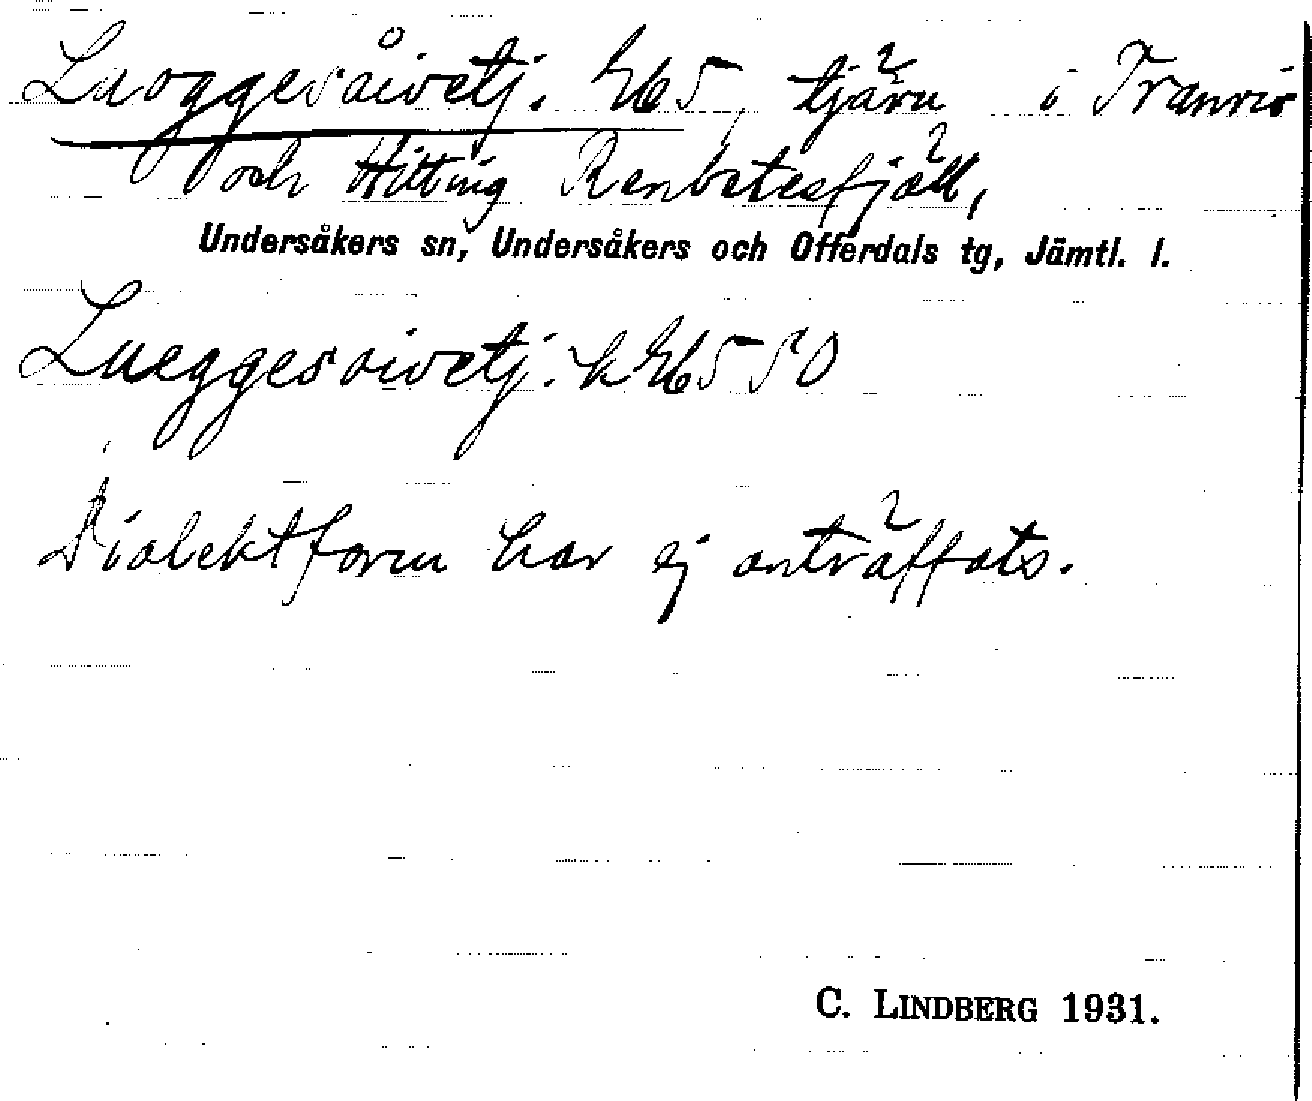 Luoggesåivetj. Eb5, tjärn i Tranris
och Hitting Renbetesfjäll,
Undersåkers sn, Undersåkers och Offerdals tg, Jämtl. l.
Lueggesoivetj. k Eb5 50
Dialektform har ej anträffats.
C. LINDBERG 1931.